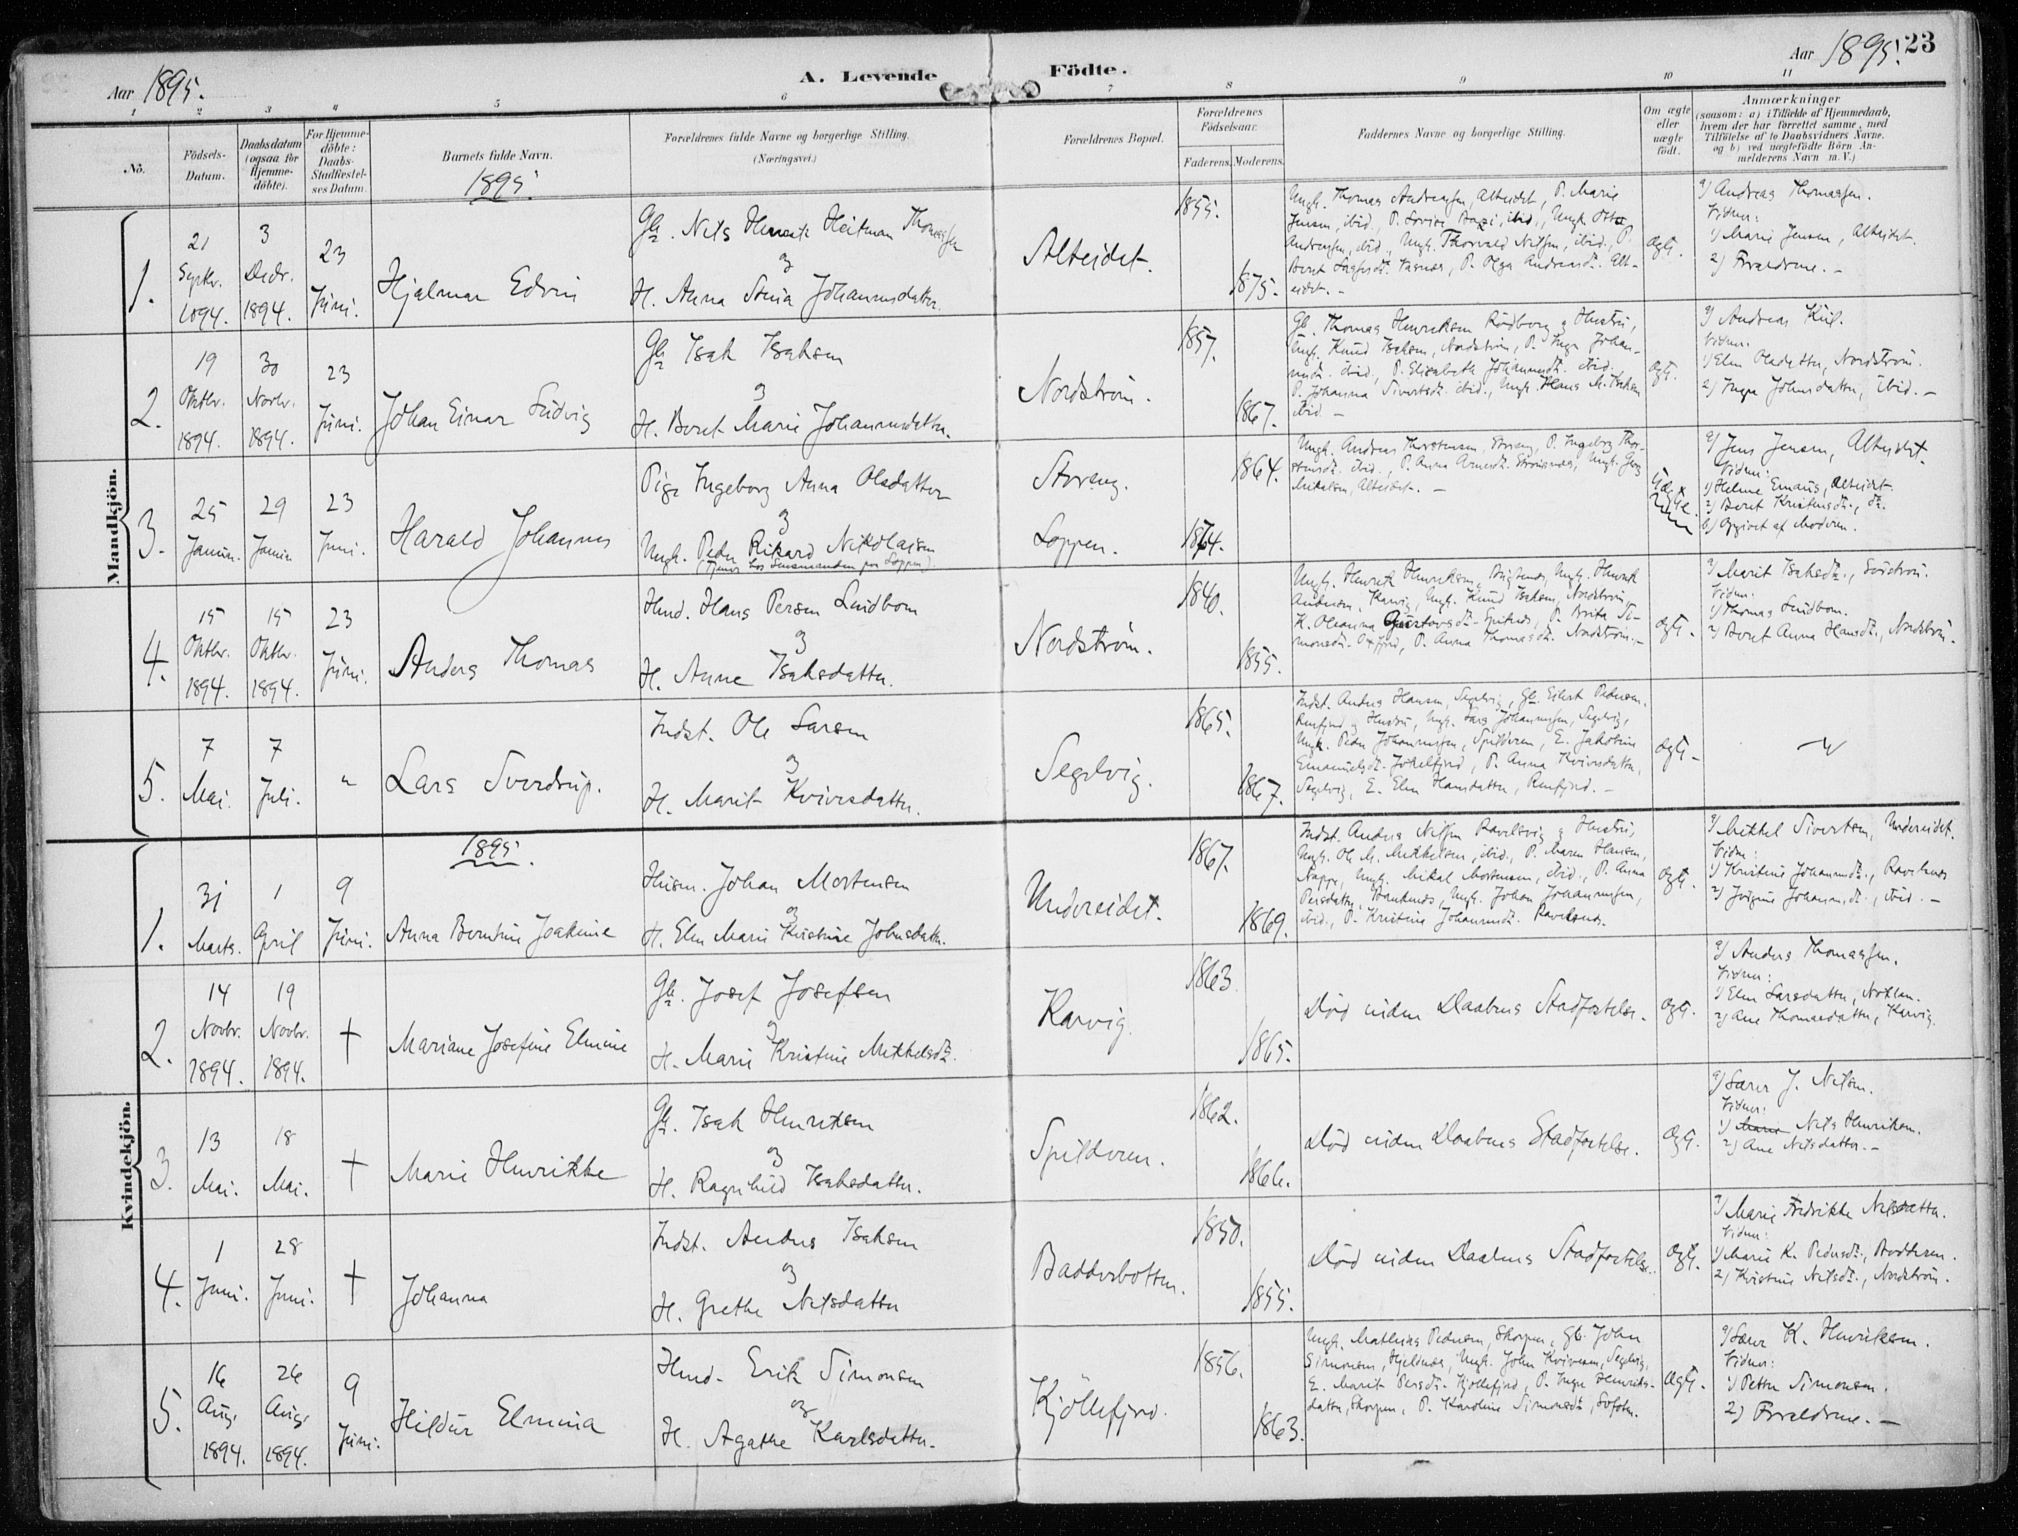 Aar 1895.
A. Levende Födte.
Aar 1895. 23
1 2 3 4 5 6 7 8 9 10 11
No.
Födsels-Datum.
Daabsdatum (ogsaa for Hjemmedöbte).
For Hjemmedöbte: Daabs-Stadfæstelses Datum.
Barnets fulde Navn.
Forældrenes fulde Navne og borgerlige Stilling.
(Næringsvei.)
Forældrenes Bopæl.
Forældrenes Födselsaar.
Faderens. Moderens.
Faddernes Navne og borgerlige Stilling.
Om ægte eller uægte födt.
Anmærkninger
(saasom: a) i Tilfælde af Hjemmedaab, hvem der har forrettet samme, med Tilföielse af to Daabsvidners Navne, og b) ved uægtefödte Börn Anmelderens Navn m. V.)
1895.
Mandkjön.
1.
21 Septbr. 1894.
3 Decbr. 1894.
23 Juni.
Hjalmar Edvin
Gb. Nils Henrik Heitman Thomassen
og
H. Anna Stina Johannesdatter.
Alteidet.
1855.
1875.
Ungk. Thomas Andreassen, Alteidet, P. Marie
Jensen, ibid,
ægt.
a) Andreas Thomassen.
Vidner:
1) Marie Jensen, Alteidet.
2) Forældrene. -
2.
19 Oktbr. 1894.
30 Novbr. 1894.
23 Juni.
Johan Einar Ludvig
Gb. Isak Isaksen
og
H. Beret Marie Johannesdatter.
Nordström.
1857.
1867.
Gb. Thomas Henriksen Rödberg og Hustru,
Ungk. Knud Isaksen, Nordström, P. Inga Johan-
nesdt. ibid, P. Elisabeth Johannesdt. ibid.
P. Johanna Sivertsdt. ibid., Ungk. Hans M. Isaksen
ibid. -
ægt.
a) Andreas Kiil.
Vidner:
1) Elen Olsdatter, Nordström.
2) Inga Johnsdatter, ibid. -
3.
25 Januar.
29 Januar
23 Juni.
Harald Johannes
Pige Ingeborg Anna Olsdatter
og
Ungk. Peder Rikard Nikolaisen
(tjener hos Lensmanden paa Loppen)
Storeng.
Loppen.
1864.
1864.
Mikalsen, Alteidet. -
a) Jens Jensen, Alteidet.
Vidner:
1) Helene Emaus, Alteidet.
2) Beret Kristensdt., do.
b) Opgivet af Moderen.
4.
15 Oktbr. 1894.
15 Oktbr. 1894.
23 Juni.
Anders Thomas
Hmd. Hans Persen Lindbom
og
H. Anne Isaksdatter.
Nordström.
1840.
1855.
ægt.
a) Marit Isaksdt.,
Vidner:
1) Thomas Lindbom.
2) Beret Anna Hansdt., Nordström.
5.
7 Mai.
7 Juli.
"
Lars Sverdrup.
Indst. Ole Larsen
og
H. Marit Kviversdatter.
Segelvig.
1865.
1867.
Indst. Anders Hansen, Segelvig, Gb. Eilert Pedersen
Renfjord og Hustru, Ungk. Lars Johannessen, Segelvig,
Ungk. Peder Johannessen, Spilderen, E. Jakobine
Emanuelsdt. Jökelfjord, P. Anna Kviversdatter,
Segelvig, E. Elen Hansdatter, Renfjord. -
ægt.
1895.
Kvindekjön.
1.
31 Marts.
1 April
9 Juni.
Anna Berntine Joakime
Husm. Johan Mortensen
og
H. Elen Marie Kristine Johnsdatter.
Undereidet.
1867.
1869.
Indst. Anders Nilsen Ravelsvig og Hustru,
Ungk. Ole M. Mikkelsen, ibid., P. Maren Hansen,
Nappe, Ungk. Mikal Mortensen, ibid., P. Anna
ibid., P. Kristine Johannesdt. Ravelsnes.
ægt.
a) Mikkel Sivertsen, Undereidet.
Vidner:
1) Kristine Johannesdt., Ravelsnes
2) Jörgine Johannesdt., ibid. -
2.
14 Novbr. 1894.
19 Novbr. 1894.
†
Mariane Josefine Elmine
Gb. Josef Josefsen
og
H. Marie Kristine Mikkelsdt.
Karvig.
1863
1865.
Död uden Daabens Stadfæstelse.
ægt.
a) Anders Thomassen.
Vidner:
1) Elen Larsdatter,
2) Ane Thomasdatter, Karvig.
3.
13 Mai.
18 Mai.
†
Marie Henrikke
Gb. Isak Henriksen
og
H. Ragnhild Isaksdatter.
Spilderen.
1862.
1866.
Död uden Daabens Stadfæstelse.
ægt.
a) Lærer J. Nilsen.
Vidner:
1) Nils Henriksen.
2) Ane Nilsdatter. -
4.
1 Juni.
28 Juni.
†
Johanna
Indst. Anders Isaksen
og
H. Grethe Nilsdatter
Badderbotten.
1850.
1855.
Död uden Daabens Stadfæstelse.
ægt.
a) Marie Fredrikke Nilsdatter.
Vidner:
1) Marie K. Pedersdt.,
2) Kristine Nilsdt., Nordström.
5.
16 Aug. 1894.
26 Aug. 1894.
9 Juni.
Hildur Elmina
Hmd. Erik Simonsen
og
H. Agathe Karlsdatter.
Kjöllefjord.
1856.
1863.
Ungk. Mathias Pedersen, Skorpen, Gb. John
Simonsen, Hjellnes, Ungk. John Kviversen, Segelvig,
E. Marit Persdt. Kjöllefjord, P. Inga Henriks-
datter, Skorpen, P. Karoline Simonsdt,
ægt.
a) Lærer K. Henriksen.
Vidner:
1) Petter Simonsen.
2) Forældrene. -